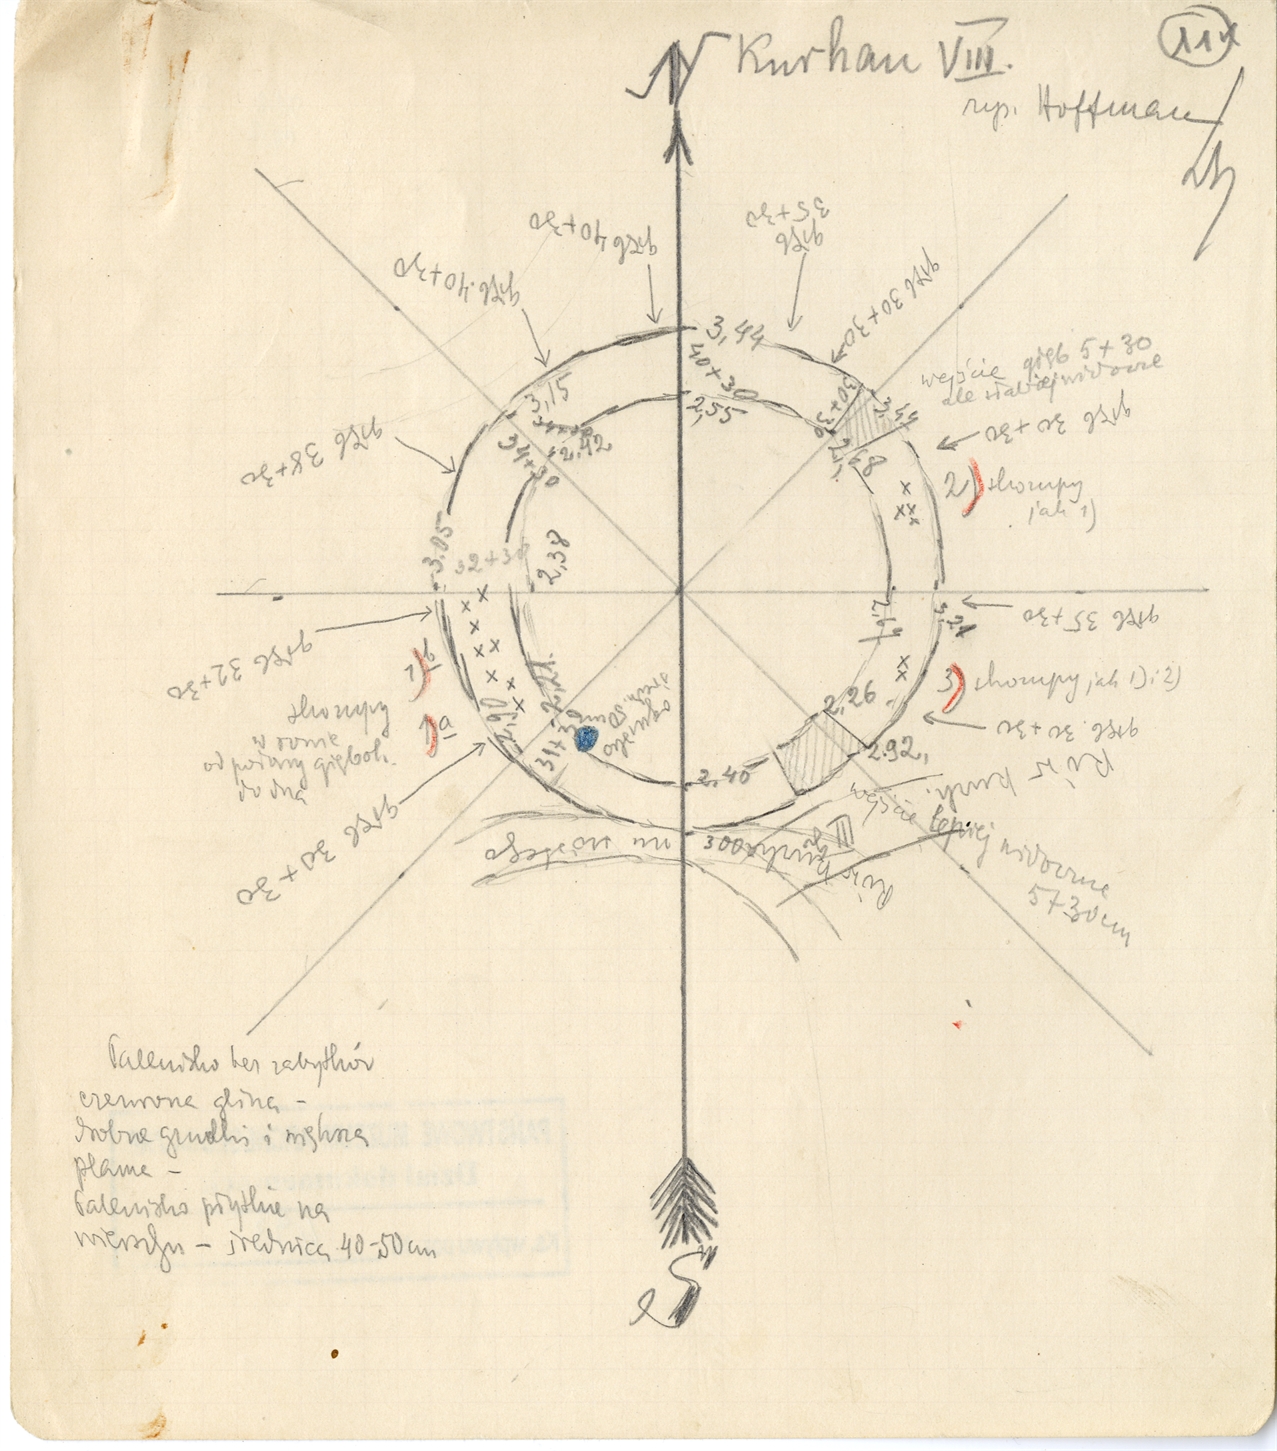 N
Kurhan VIII.
11
rys. Hoffman
głęb 40+30
35+30
głęb
głęb. 40+30
głęb 30+30
3,44
40+30
2,55
30+30
3,44
2,68
wejście głęb 5+30
ale słabiej widoczne
głęb 30+30
3,15
34+30
2,42
34+30
głęb 38+30
2) skorupy
jak 1)
3.05
32+30
2,38
głęb 35+30
3,21
głęb 32+30
1) b
1) a
skorupy
w rowie
od połowy głębok.
do dna
3) skorupy jak 1) i 2)
2,26
głęb. 30+30
2.92
31+30
ognisko
głęb 30+30
2,40
300
Rów kurh.
Rów kurhanu
VII
na
wejście lepiej widoczne
5+30cm
Palenisko bez zabytków
czerwona glina -
drobne grudki i większa
plama -
Palenisko płytkie na
wierzchu - średnica 40-50cm
S